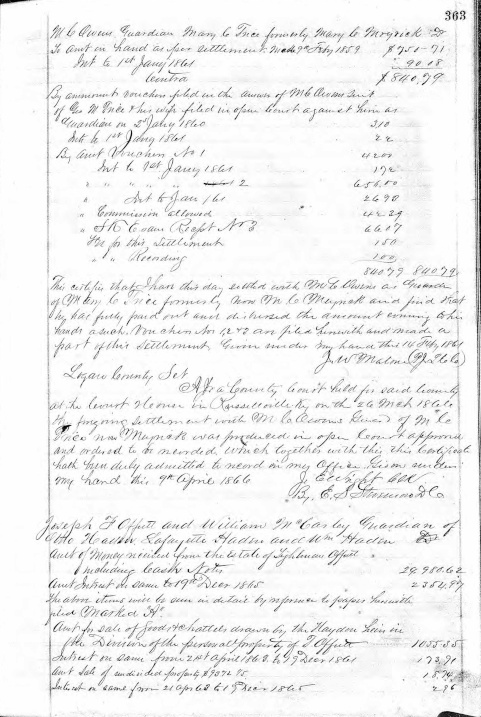 363
M C Owens Guardian Mary C Price formerly Mary C Mayrick Dr
To Amt on hand as per settlement made 9th Feby 1859 $750-71
Int to 1st Jany 1861 90.08
Contra $840.79
By ammount vouchers filed in the answer of M C Owens Suit
of Geo M Price & his wife filed in open Court against him as
Guardian on 2d Jany 1860 310
Int to 1st Jany 1861 22
By Amt Voucher No 1 4200
Int to 1st Jany 1861 172
" " " " 2 656.00
" Int to Jan 1861 26 90
" Commission allowed 42 39
" Recpt No 3 6607
Fee for this Settlement 150
" " Recording 100
84079 84079
This certifies that I have this day settled with M C Owens as Guardian
of Mary C Price formerly now M C Mayrick and find that
he has fully paid out and disbursed the amount coming to his
hands as such. Vouchers No 1, 2 & 3 are filed herewith and made a
part of this Settlement Given under my hand this 14 Feby 1861
J. W Malone P J L C
Logan County Sct
At a County Court held for said County
at the Court House in Russellville Ky on the 26 Mch 1866
the forgoing settlement with M C Owens Guard of M C
Price now Mayrick was produced in open Court approved
and ordered to be recorded, which together with this Certificate
hath been duly admitted to record in my Office Given under
my hand this 9th April 1866
J E Wright Clk
By, E. S D C
Joseph F Offutt and William McCarley Guardian of
Haden, Lafayette Haden and Wm Haden Dr
Amt of Money received from the Estate of Tighlman Offutt
including Cash Notes 29.980.62
Amt Interest on same to 19th Decr 1865 2354.97
The above items will be seen in detail by reference to paper herewith
filed Marked A
Amt for sale of Goods & Chattels drawn by the Haydon Heirs in
the Division of the personal property of T Offutt 1055.35
Interest on same from 21st April 1863 to 19 Decr 1861 173,91
Amt Sale of undivided property $9072.95
Interest on same from 21 Apr 63 to 19 Decr 1865 2.96